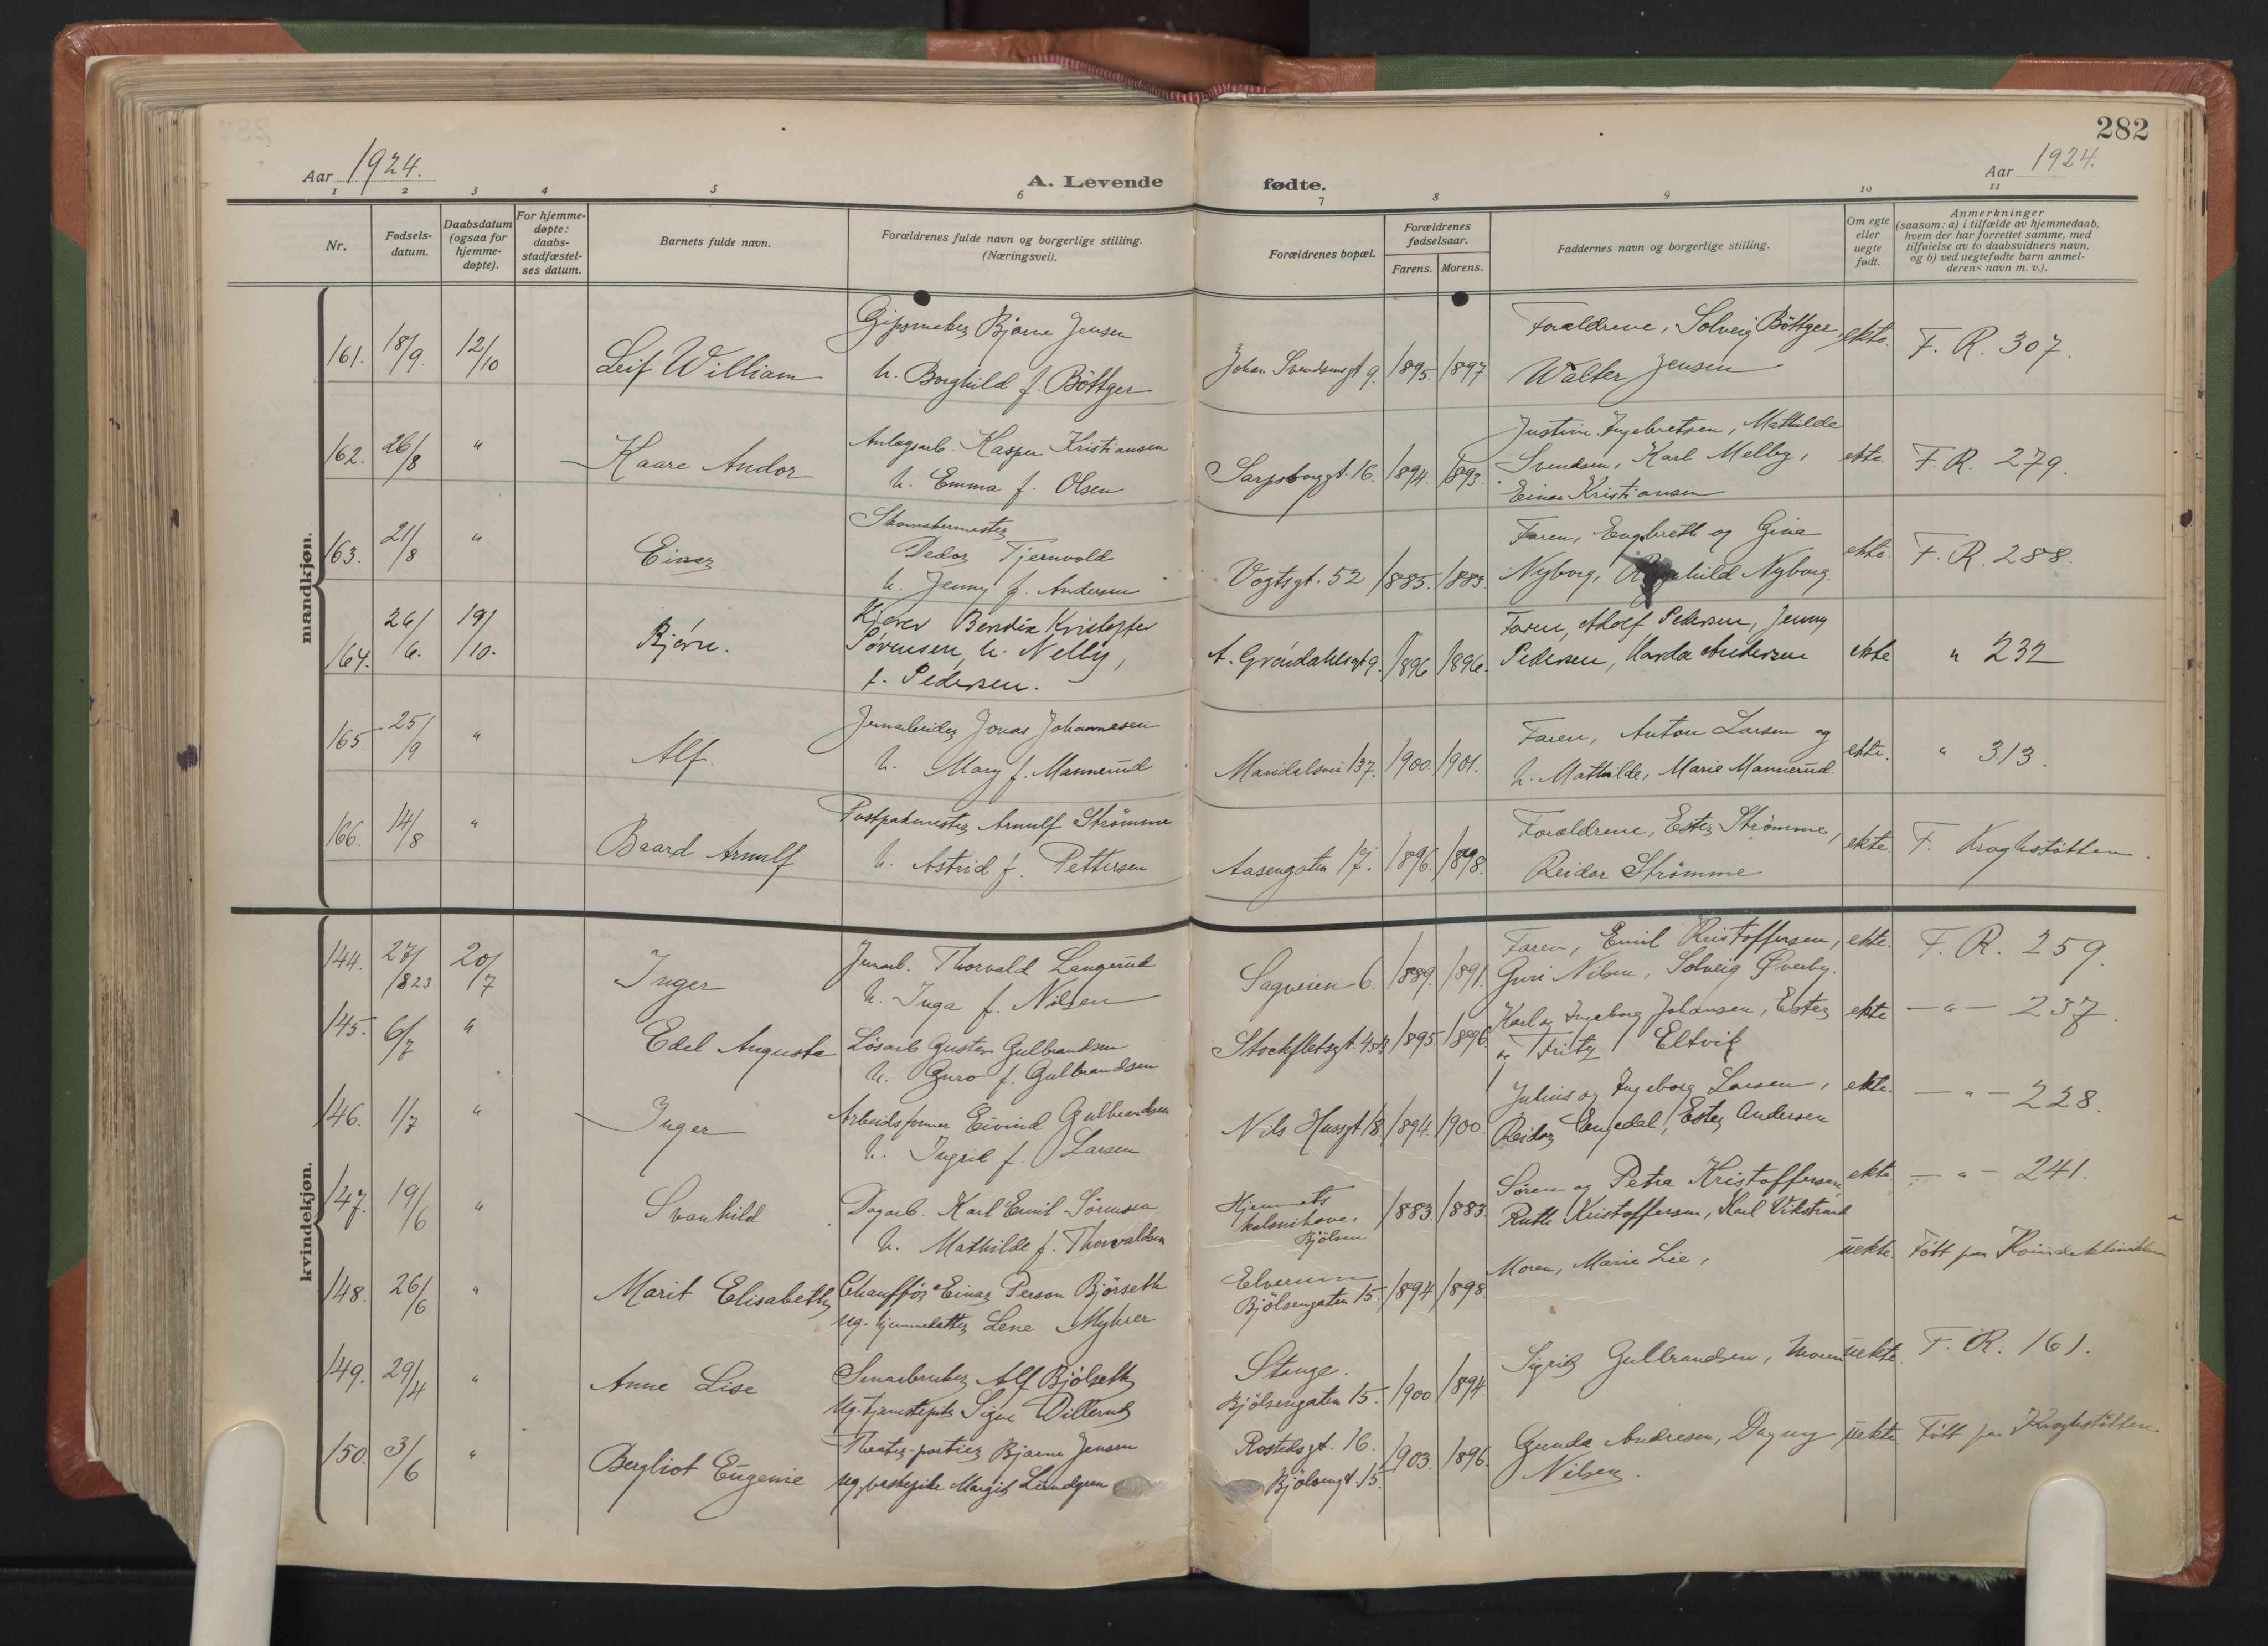 282
Aar 1924.
A. Levende fødte.
Aar 1924.
1 2 3 4 5 6 7 8 9 10 11
Nr.
Fødsels-
datum.
Daabsdatum
(ogsaa for
hjemme-
døpte).
For hjemme-
døpte:
daabs-
stadfæstel-
ses datum.
Barnets fulde navn.
Forældrenes fulde navn og borgerlige stilling.
(Næringsvei).
Forældrenes bopæl.
Forældrenes
fødselsaar.
Farens. Morens.
Faddernes navn og borgerlige stilling.
Om egte
eller
uegte
født.
Anmerkninger
(saasom: a) i tilfælde av hjemmedaab,
hvem der har forrettet samme, med
tilføielse av to daabsvidners navn,
og b) ved uegtefødte barn anmel-
derens navn m. v.).
mandkjøn.
161. 18/9. 12/10 Leif William
Gipsmaker Bjarne Jensen
h. Borghild f. Böttger
Johan Svendsensgt 9. 1895. 1897.
Forældrene, Solveig Böttger
Walter Jensen
ekte. F. R. 307.
162. 26/8 " Kaare Andor
Anlegsarb. Kasper Kristiansen
h. Emma f. Olsen
Sarpsborggt. 16. 1894. 1893.
Justine Ingebretsen, Mathilde
Svendsen, Karl Melby,
Einar Kristiansen
ekte. F. R. 279.
163. 21/8 " Einar
Skomakermester
Pedor Tjernvold
h. Jenny f. Andersen
Vogtsgt. 52. 1885. 1883.
Faren, Engebreth og Gina
Nyborg, Ragnhild Nyborg.
ekte. F. R. 288.
164. 26/6. 19/10. Bjørn.
Kjører Bendix Kristoffer
Sørensen, h. Nelly,
f. Pedersen.
A. Gröndahlsgt 9. 1896 1896.
Faren, Adolf Pedersen, Jenny
Pedersen, Harda Andersen
ekte " 232
165. 25/9 " Alf.
Jernarbeider Jonas Johannesen
h. Mary f. Mannerud
Maridalsvei 137. 1900. 1901.
Faren, Anton Larsen og
h. Mathilde, Marie Mannerud.
ekte. " 313.
166. 14/8 " Baard Arnulf
Postpakmester Arnulf Strømme
h. Astrid f. Pettersen
Aasengaten 17. 1896. 1898.
Forældrene, Ester Strømme,
Reidar Strømme
ekte. F. Kroghstøtten.
kvindekjøn.
144. 27/823. 20/7 Inger
Jernarb. Thorvald Langerud
h. Inga f. Nilsen
Sagveien 6. 1889. 1891.
Faren, Emil Kristoffersen,
Guri Nilsen, Solveig Øverby.
ekte. F. R. 259.
145. 6/7 " Edel Augusta
Løsarb Gustav Gulbrandsen
h. Guro f. Gulbrandsen
1895. 1896.
Karl og Ingeborg Johansen, Ester
og Fritz Eltvik
ekte — " — 237.
146. 1/7 " Inger
Arbeidsformer Eivind Gulbrandsen
h. Ingrid f. Larsen
Nils Husgt 18. 1894. 1900
Julius og Ingeborg Larsen,
Reidar Engedal, Ester Andersen
ekte. — " — 228.
147. 19/6 " Svanhild
Dagarb. Karl Emil Sörensen
h. Mathilde f. Thorvaldsen
Hjemmets
kolonihave.
Bjölsen
1883. 1883.
Søren og Petra Kristoffersen,
Ruth Kristoffersen, Karl Vikstrand
ekte. — " — 241.
148. 26/6 " Marit Elisabeth
Chaufför Einar Person Björseth
ug. hjemmedatter Lene Myhrer
Elverum
Bjölsengaten 15. 1894 1898.
Moren, Marie Lie,
uekte. Født paa Kvindeklinikken
149. 29/4 " Anne Lise
Smaabruker Alf Bjölseth
ug. tjenestepike Signe Dillerud
Stange.
Bjölsengaten 15. 1900 1894.
Sigrid Gulbrandsen, Moren
uekte. F. R. 161.
150. 3/6 " Bergliot Eugenie
Theater-portier Bjarne Jensen
ug. Margit Lundgren
Rostedsgt. 16.
Bjölsengt. 15. 1903. 1896.
Gunda Andresen, Dagny
Nilsen.
uekte Født paa Kroghstøtten